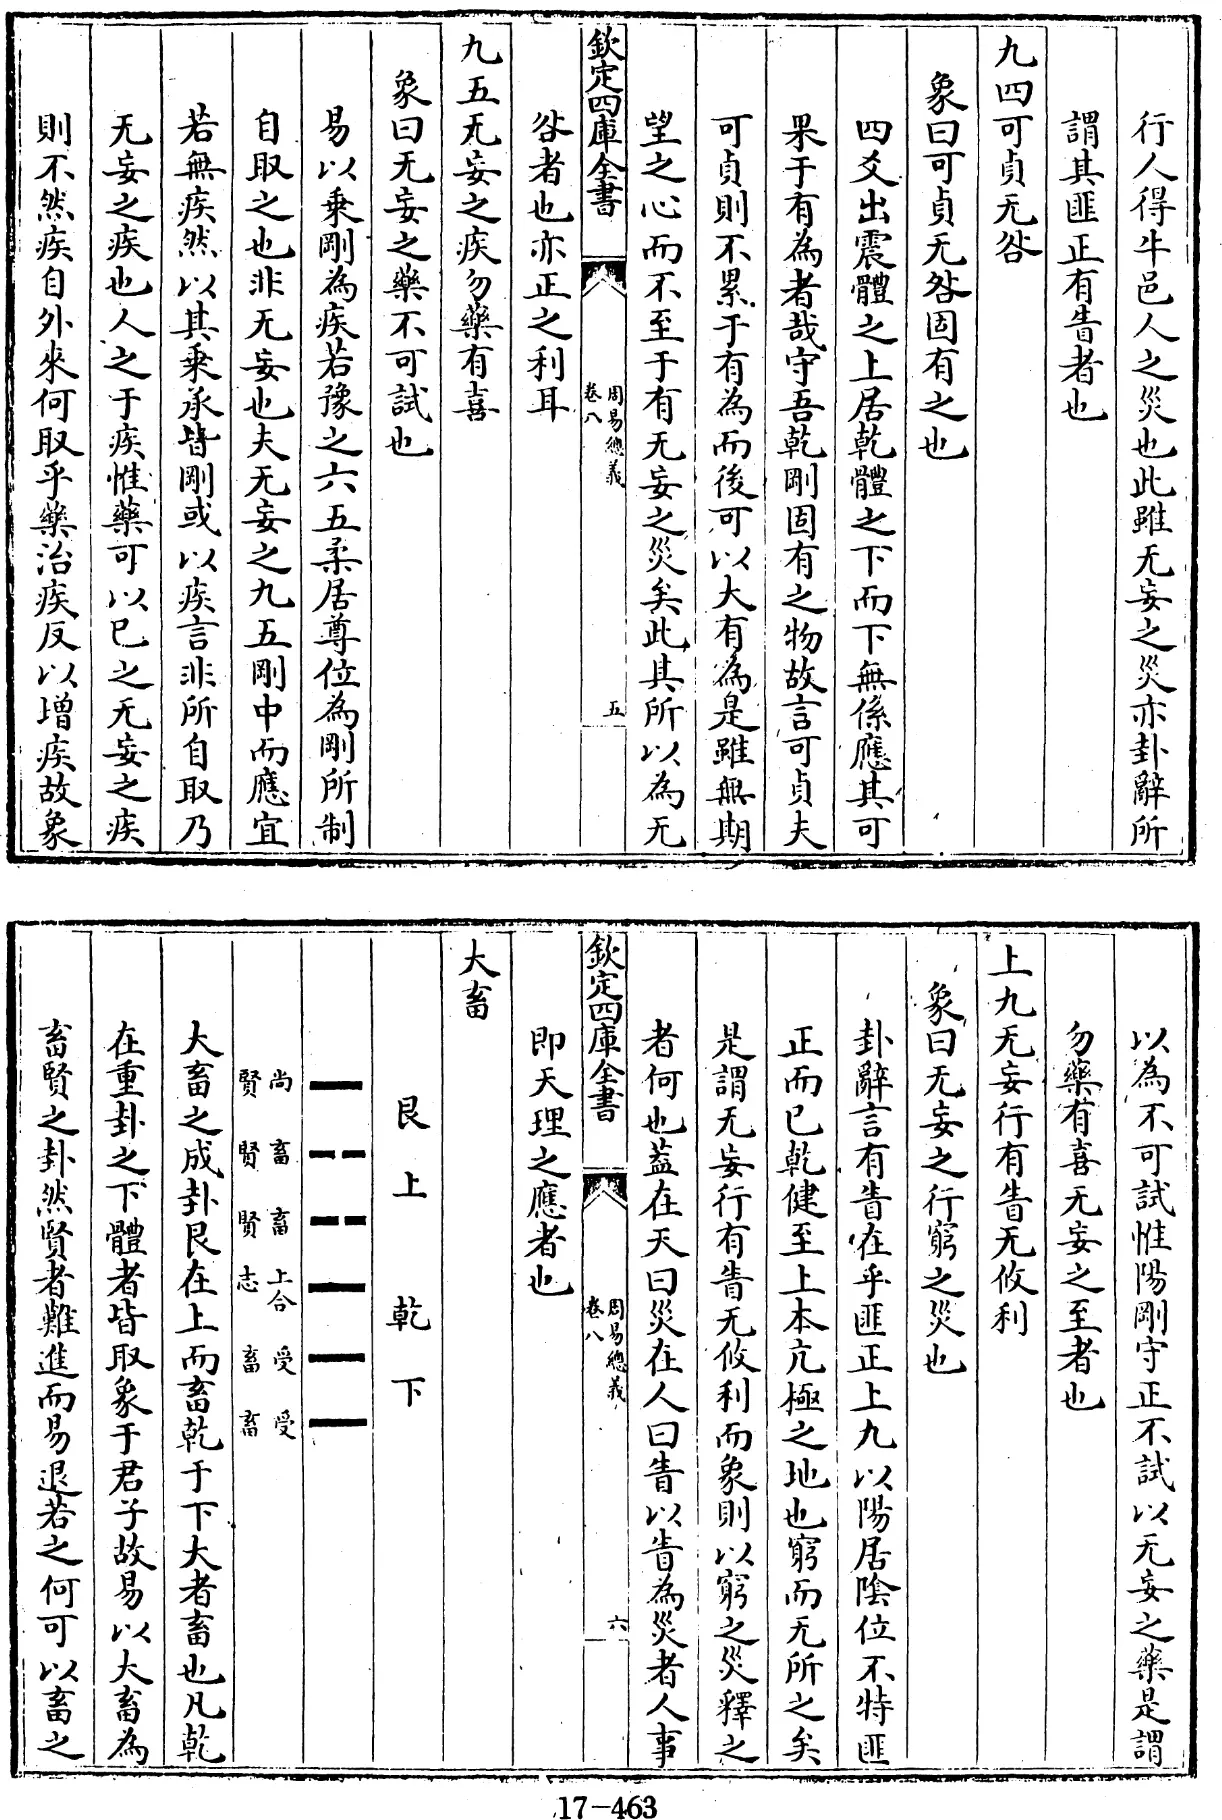 行人得牛邑人之災也此雖无妄之災亦卦辭所
謂其匪正有眚者也
九四可貞无咎
象曰可貞无咎固有之也
四爻出震體之上居乾體之下而下無係應其可
果于有為者哉守吾乾剛固有之物故言可貞夫
可貞則不累于有為而後可以大有為是雖無期
望之心而不至于有无妄之災矣此其所以為无
欽定四庫全書
周易總義
卷八
五
咎者也亦正之利耳
九五无妄之疾勿藥有喜
象曰无妄之藥不可試也
易以乗剛為疾若豫之六五柔居尊位為剛所制
自取之也非无妄也夫无妄之九五剛中而應宜
若無疾然以其乗承皆剛或以疾言非所自取乃
无妄之疾也人之于疾惟藥可以已之无妄之疾
則不然疾自外來何取乎藥治疾反以增疾故象
以為不可試惟陽剛守正不試以无妄之藥是謂
勿藥有喜无妄之至者也
上九无妄行有眚无攸利
象曰无妄之行窮之災也
卦辭言有眚在乎匪正上九以陽居陰位不特匪
正而已乾健至上本亢極之地也窮而无所之矣
是謂无妄行有眚无攸利而象則以窮之災釋之
者何也葢在天曰災在人曰眚以眚為災者人事
欽定四庫全書
周易總義
卷八
六
即天理之應者也
大畜
艮上乾下
尚賢
畜賢
畜賢
上合志
受畜
受畜
大畜之成卦艮在上而畜乾于下大者畜也凡乾
在重卦之下體者皆取象于君子故易以大畜為
畜賢之卦然賢者難進而易退若之何可以畜之
17-463